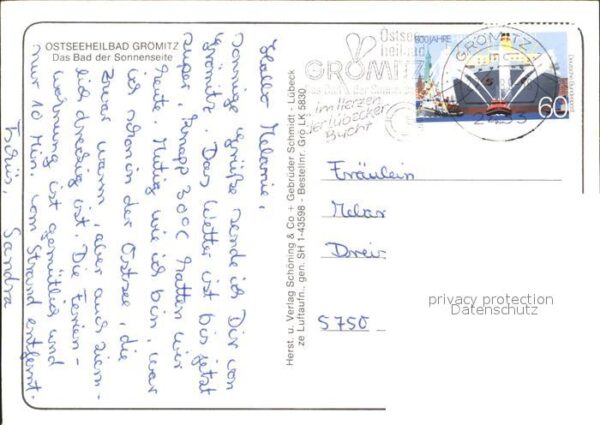 OSTSEEHEILBAD GRÖMITZ
Das Bad der Sonnenseite
Hallo Melanie,
sonnige Grüße sende ich Dir von
Grömitz. Das Wetter ist bis jetzt
super. Knapp 30°C hatten wir
heute. Mutig wie ich bin, war
ich schon in der Ostsee, die
zwar warm, aber auch ziem-
lich dreckig ist. Die Ferien-
wohnung ist gemütlich und
nur 10 Min. vom Strand entfernt.
Tschüs, Sandra
Herst. u. Verlag Schöning & Co + Gebrüder Schmidt - Lübeck
ze Luftaufn., gen. SH 1-43598 - Bestellnr. Grö LK 5830
Ostsee
heilbad
GRÖMITZ
Das Bad der Sonnenseite
...im Herzen
der Lübecker
Bucht
800 JAHRE
60
GRÖMITZ
2433
Fräulein
Melan
Drei
5750
privacy protection
Datenschutz